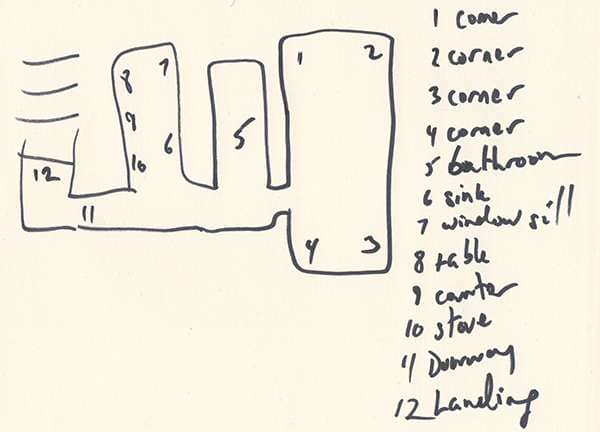 1 2
8 7
9 6 5
10
12
11
4 3
1 corner
2 corner
3 corner
4 corner
5 bathroom
6 sink
7 window sill
8 table
9 counter
10 stove
11 Doorway
12 Landing